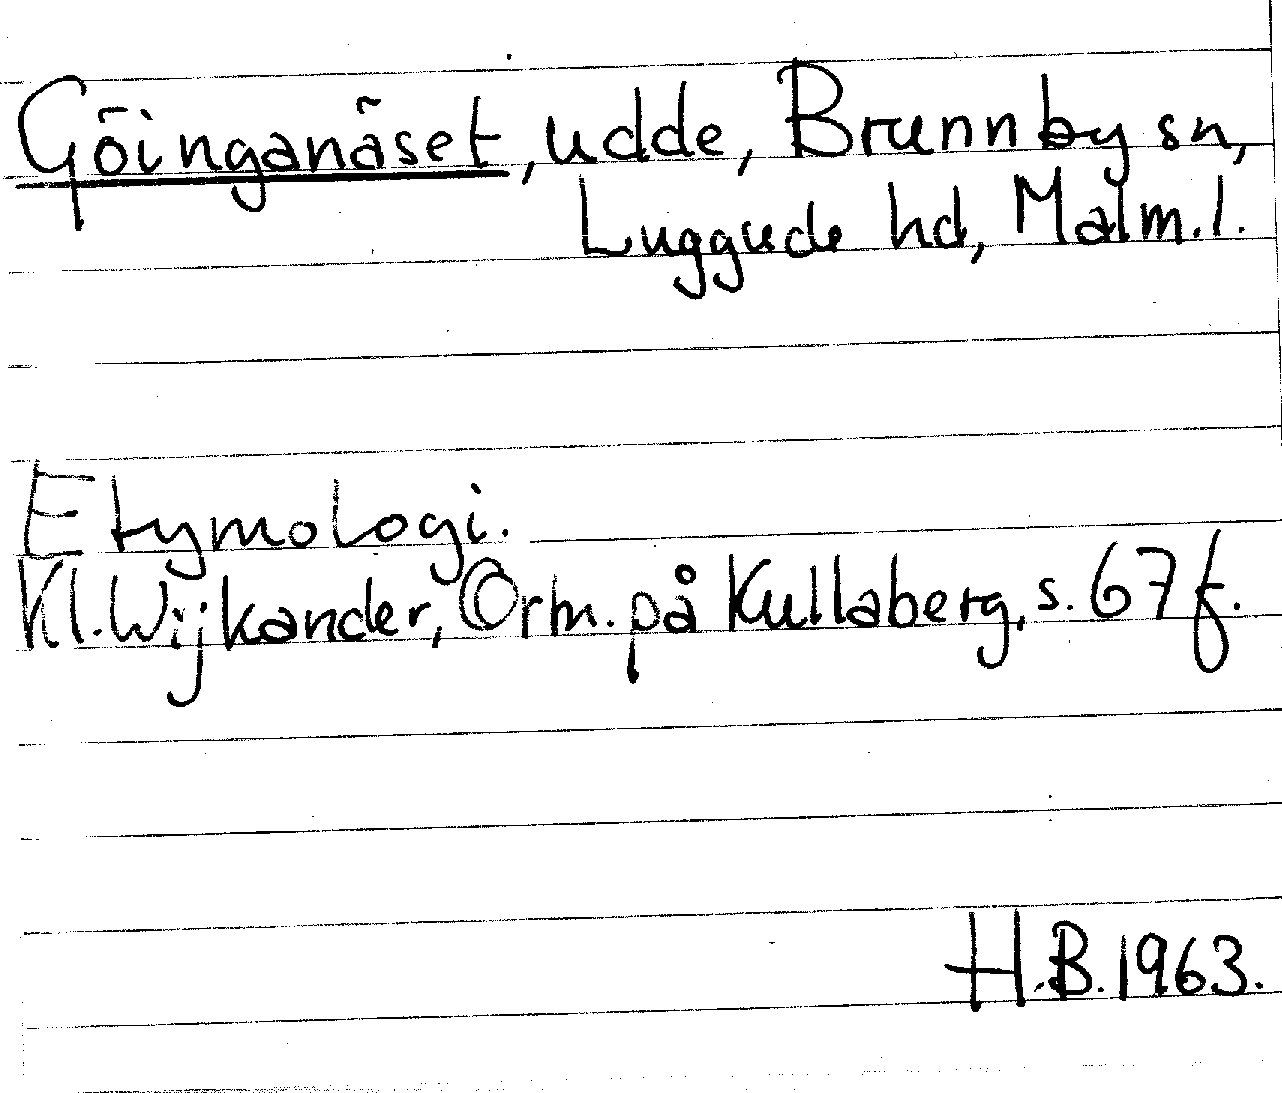 Göinganäset, udde, Brunnby sn,
Luggude hd, Malm.l.
Etymologi.
Kl. Wijkander, Orm. på Kullaberg, s. 67 f.
H.B. 1963.